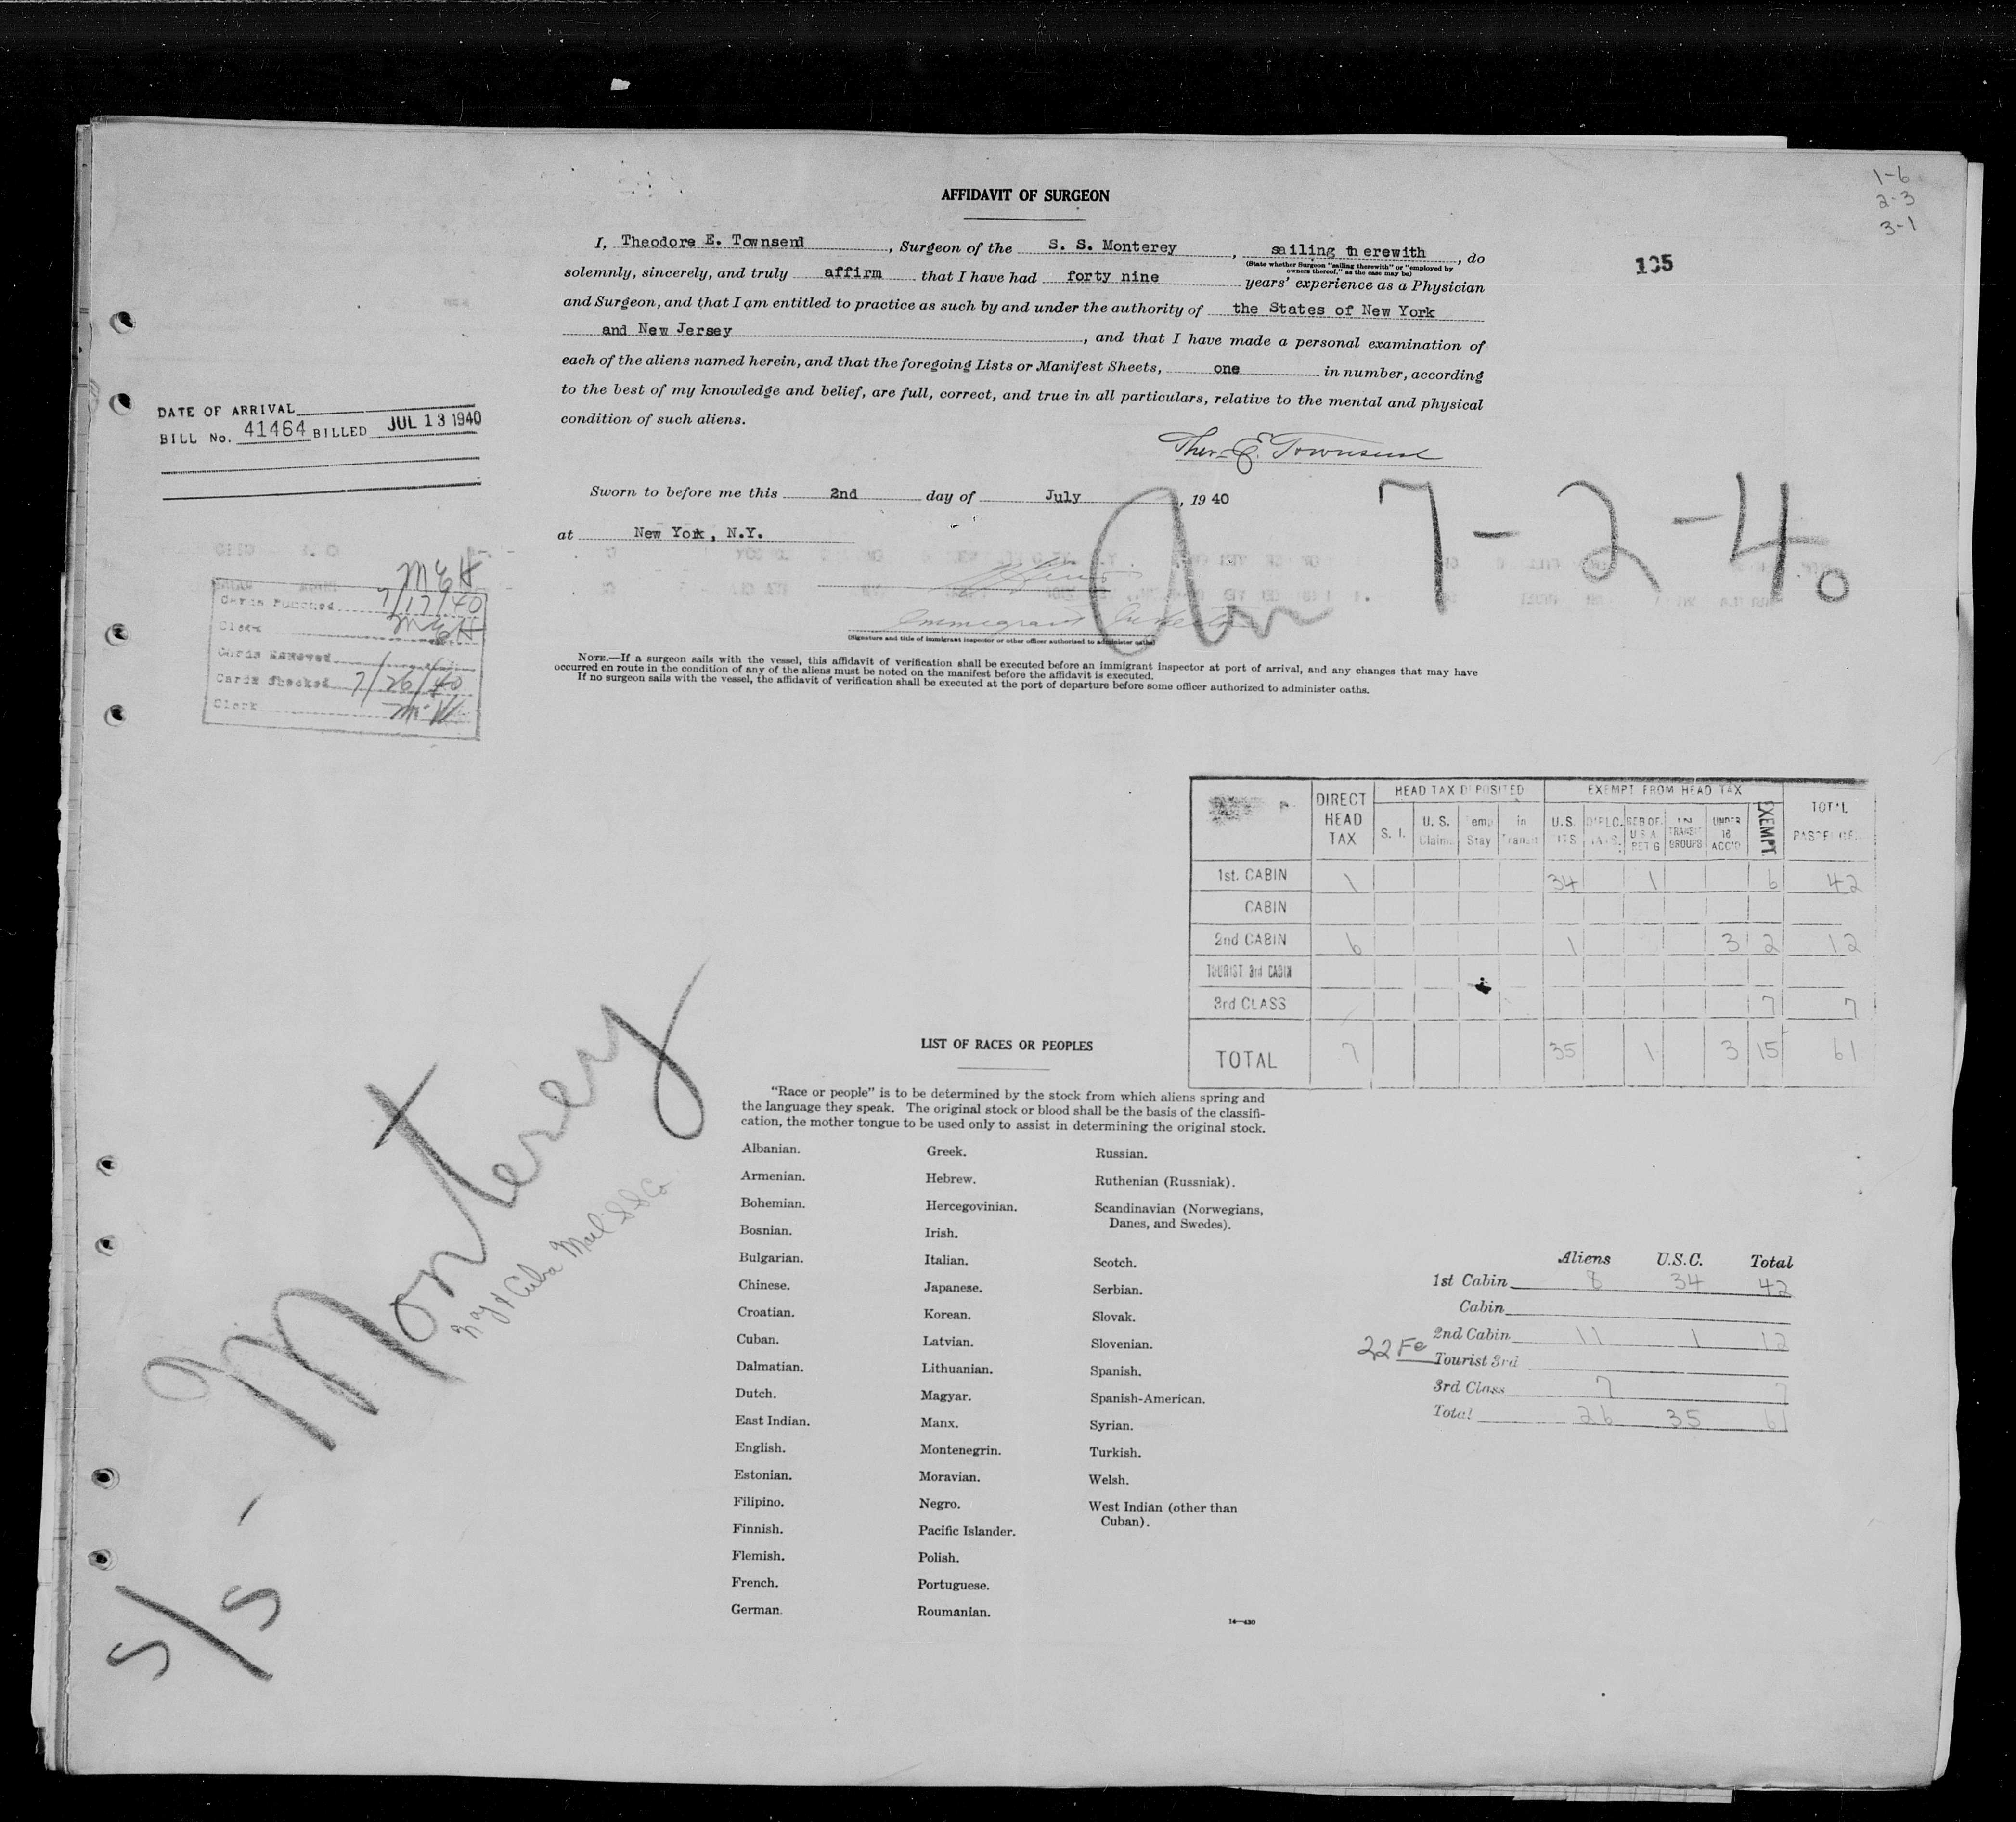 1-6
2-3
3-1
AFFIDAVIT OF SURGEON
I, Theodore E. Townsend, Surgeon of the S. S. Monterey, sailing therewith, do
(State whether Surgeon "sailing therewith" or "employed by
owners thereof," as the case may be)
105
solemnly, sincerely, and truly affirm that I have had forty nine years' experience as a Physician
and Surgeon, and that I am entitled to practice as such by and under the authority of the States of New York
and New Jersey, and that I have made a personal examination of
each of the aliens named herein, and that the foregoing Lists or Manifest Sheets, one in number, according
to the best of my knowledge and belief, are full, correct, and true in all particulars, relative to the mental and physical
condition of such aliens.
Theo. E. Townsend
DATE OF ARRIVAL
BILL No. 41464 BILLED JUL 13 1940
Sworn to before me this 2nd day of July, 1940
at New York, N.Y.
Arr 7-2-40
Immigrant Inspector
(Signature and title of immigrant inspector or other officer authorized to administer oaths)
NOTE.—If a surgeon sails with the vessel, this affidavit of verification shall be executed before an immigrant inspector at port of arrival, and any changes that may have
occurred en route in the condition of any of the aliens must be noted on the manifest before the affidavit is executed.
If no surgeon sails with the vessel, the affidavit of verification shall be executed at the port of departure before some officer authorized to administer oaths.
MEH
Cards Punched 7/17/40
Clerk MEH
Cards Removed
Cards Checked 7/26/40
Clerk
DIRECT HEAD TAX HEAD TAX DEPOSITED EXEMPT FROM HEAD TAX TOTAL PASSENGERS
S. I. U. S. Claims Temp Stay in Transit U.S. CITS DIPLO. RES OF U S A RET'G IN TRANSIT GROUPS UNDER 16 ACC'D EXEMPT
1st. CABIN 1 34 1 6 42
CABIN
2nd CABIN 6 1 3 2 12
TOURIST 3rd CABIN
3rd CLASS 7 7
TOTAL 7 35 1 3 15 61
S/S - Monterey
N.Y & Cuba Mail S S Co
LIST OF RACES OR PEOPLES
"Race or people" is to be determined by the stock from which aliens spring and
the language they speak. The original stock or blood shall be the basis of the classifi-
cation, the mother tongue to be used only to assist in determining the original stock.
Albanian.
Armenian.
Bohemian.
Bosnian.
Bulgarian.
Chinese.
Croatian.
Cuban.
Dalmatian.
Dutch.
East Indian.
English.
Estonian.
Filipino.
Finnish.
Flemish.
French.
German.
Greek.
Hebrew.
Hercegovinian.
Irish.
Italian.
Japanese.
Korean.
Latvian.
Lithuanian.
Magyar.
Manx.
Montenegrin.
Moravian.
Negro.
Pacific Islander.
Polish.
Portuguese.
Roumanian.
Russian.
Ruthenian (Russniak).
Scandinavian (Norwegians,
Danes, and Swedes).
Scotch.
Serbian.
Slovak.
Slovenian.
Spanish.
Spanish-American.
Syrian.
Turkish.
Welsh.
West Indian (other than
Cuban).
14—430
Aliens U.S.C. Total
1st Cabin 8 34 42
Cabin
2nd Cabin 11 1 12
22 Fe
Tourist 3rd
3rd Class 7 7
Total 26 35 61